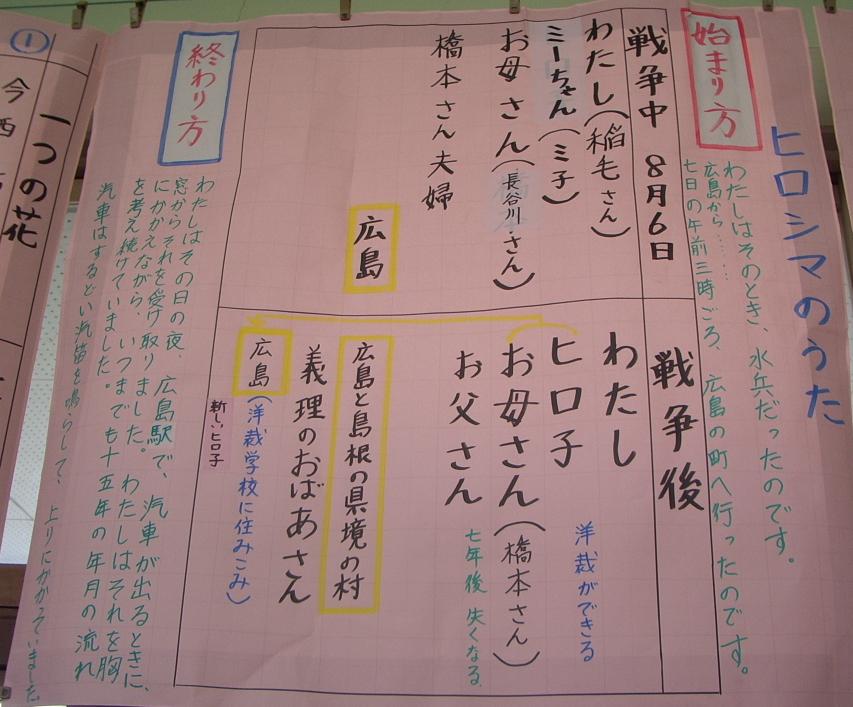 ヒロシマのうた
始まり方
わたしはそのとき、水兵だったのです。
広島から……
七日の午前三時ごろ、広島の町へ行ったのです。
戦争中 8月6日
わたし(稲毛さん)
ミーちゃん(ミ子)
お母さん(長谷川さん)
橋本さん夫婦
広島
戦争後
わたし
ヒロ子
洋裁ができる
お母さん(橋本さん)
お父さん
七年後
広島と島根の県境の村
義理のおばあさん
広島(洋裁学校に住みこみ)
新しいヒロ子
終わり方
わたしはその日の夜、広島駅で、汽車が出るときに、
窓からそれを受け取りました。わたしはそれを胸
にかかえながら、いつまでも十五年の年月の流れ
を考え続けていました。
汽車はするどい汽笛を鳴らして、上りにかかっていました。
①
一つの花
今西